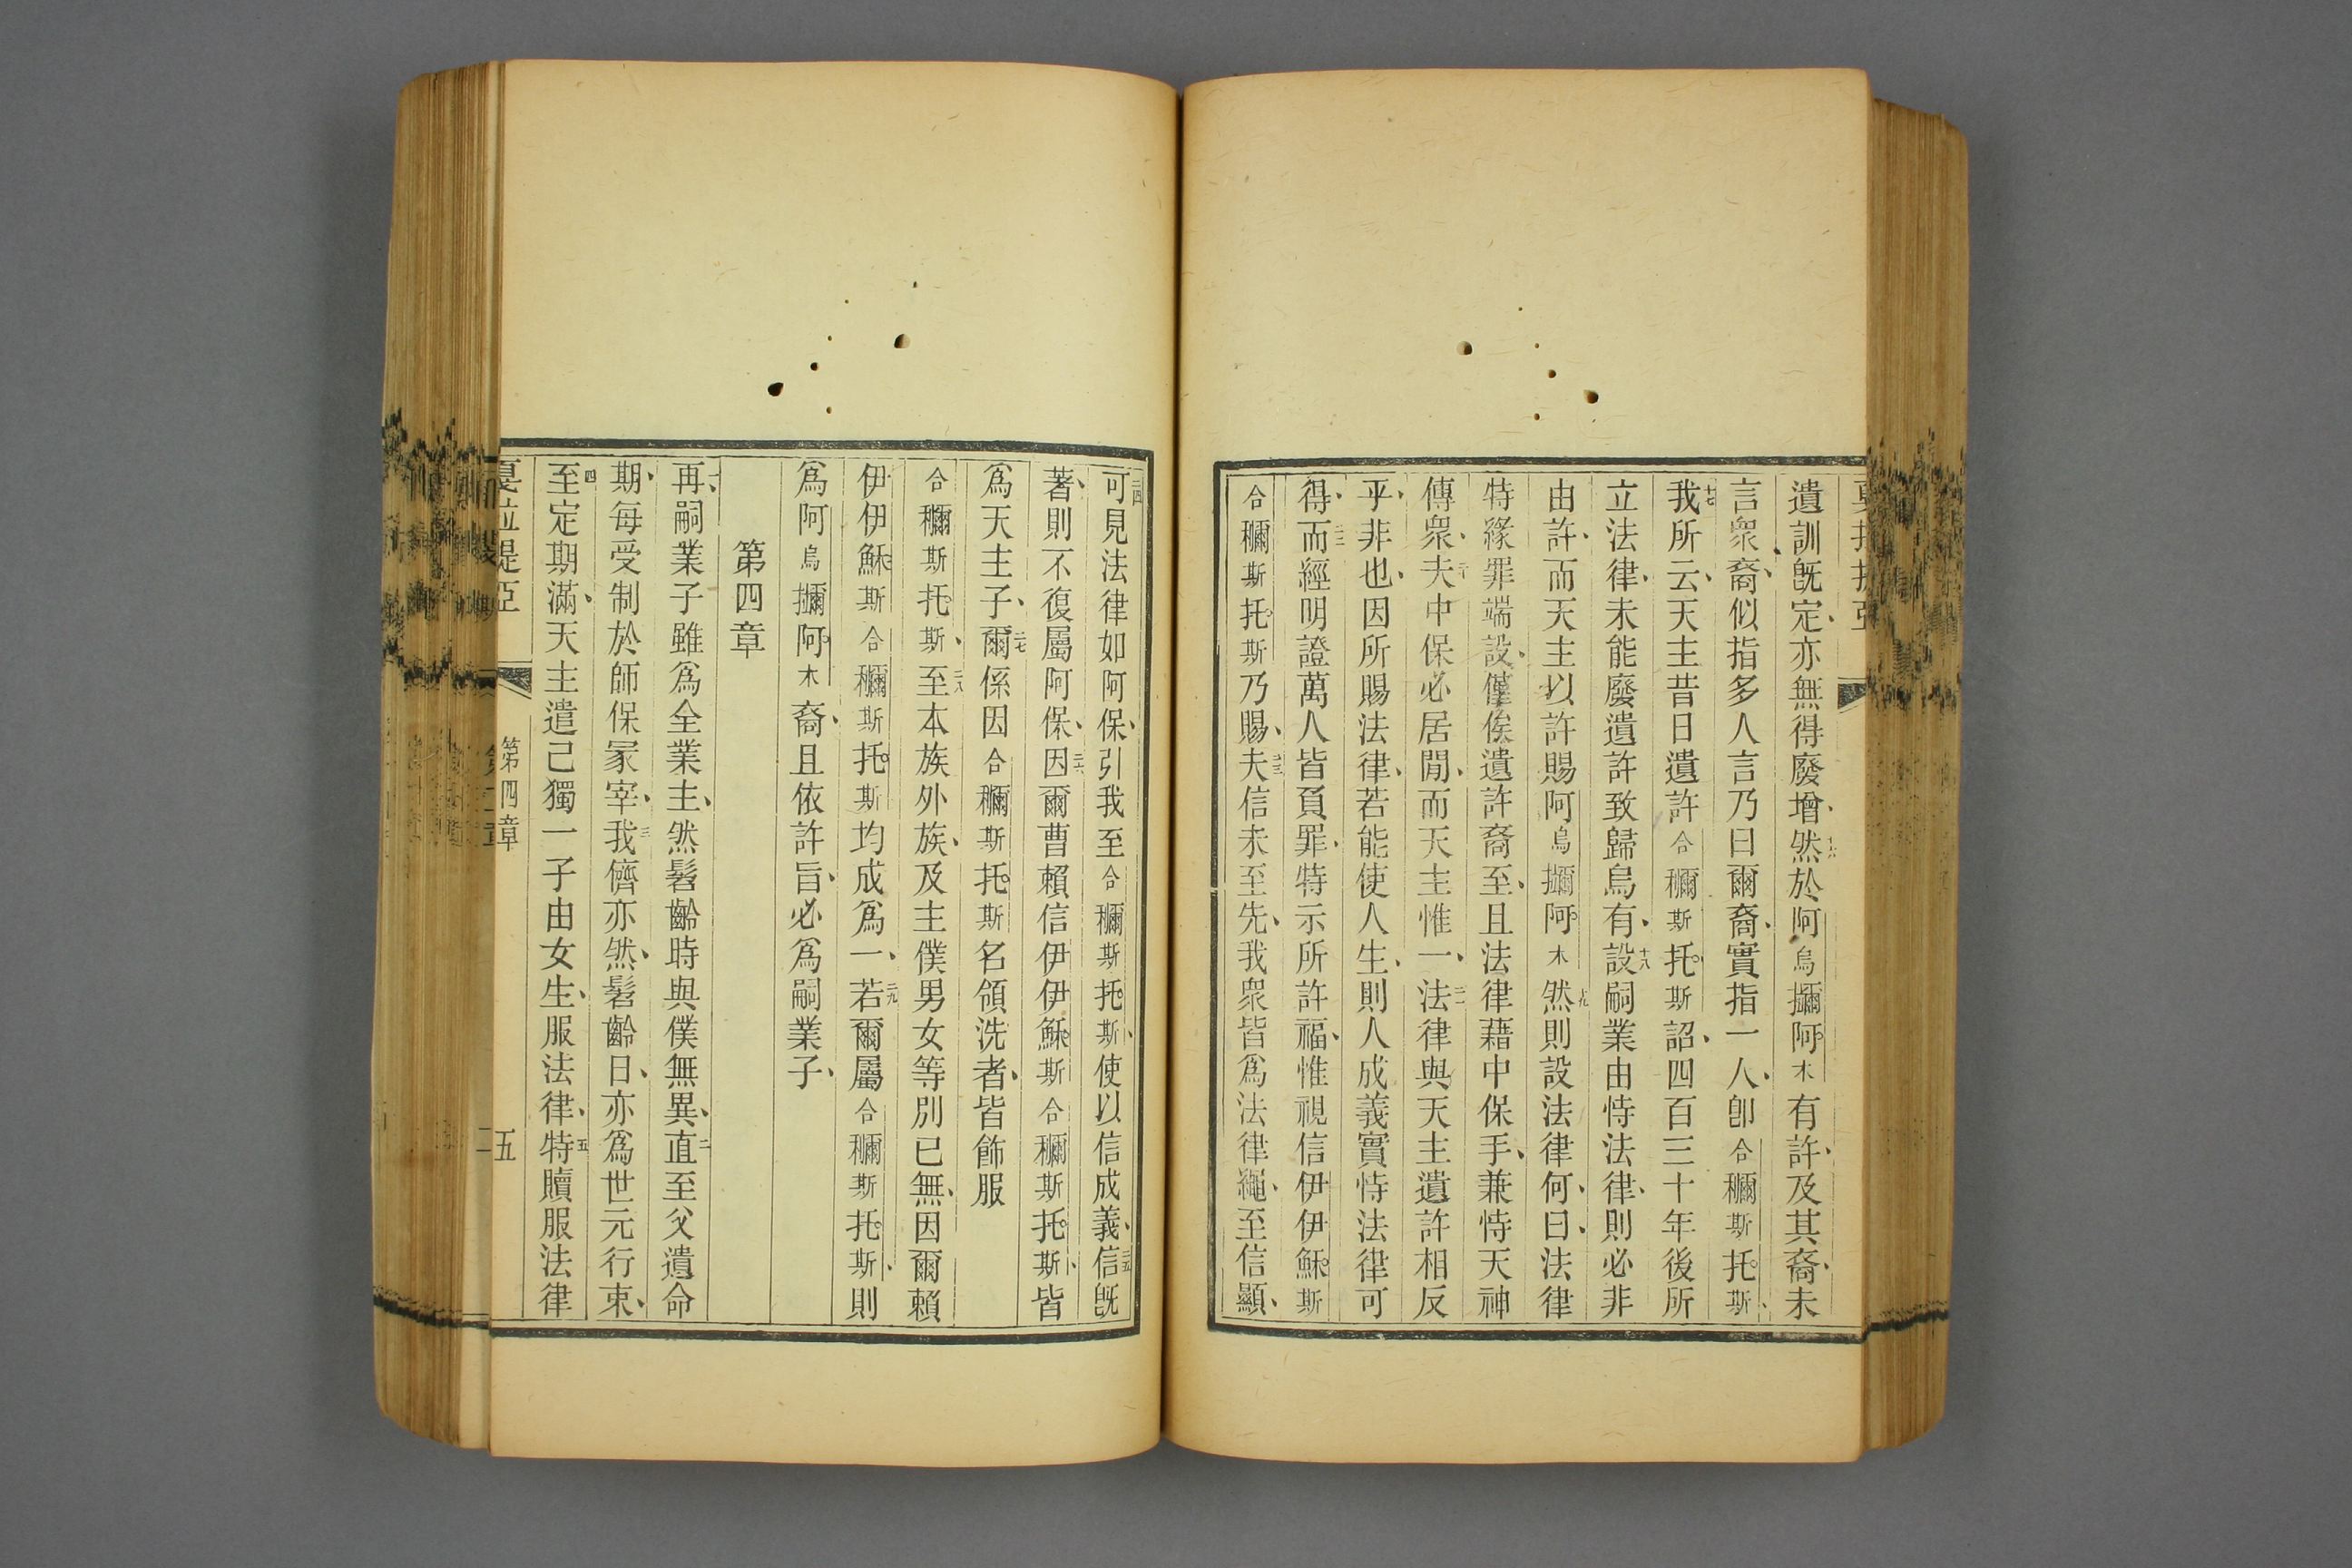 遺訓旣定、亦無得廢增、十六然於阿烏𢹂阿木有許、及其裔、未
言衆裔、似指多人言乃曰爾裔、實指一人、卽合穪斯托斯、
十七我所云、天主昔日遺許合穪斯托斯詔、四百三十年後所
立法律、未能廢遺許致歸烏有、十八設嗣業由恃法律、則必非
由許、而天主以許賜阿烏𢹂阿木十九然則設法律何、曰、法律
特緣罪端設、僅俟遺許裔至、且法律藉中保手、兼恃天神
傳衆、二十夫中保必居閒、而天主惟一、二一法律與天主遺許相反
乎、非也、因所賜法律、若能使人生、則人成義實恃法律可
得、二二而經明證萬人皆負罪、特示所許福、惟視信伊伊穌斯
合穪斯托斯乃賜、二三夫信未至先、我衆皆爲法律繩、至信顯、
二四可見法律如阿保、引我至合穪斯托斯、使以信成義、二五信旣
著、則不復屬阿保、二六因爾曹賴信伊伊穌斯合穪斯托斯、皆
爲天主子、二七爾係因合穪斯托斯名領洗者、皆飾服
合穪斯托斯、二八至本族外族、及主僕男女等別已無、因爾賴
伊伊穌斯合穪斯托斯均成爲一、二九若爾屬合穪斯托斯、則
爲阿烏𢹂阿木裔、且依許旨、必爲嗣業子、
第四章
一再、嗣業子雖爲全業主、然髫齡時與僕無異、二直至父遺命
期、每受制於師保冢宰、三我儕亦然、髫齡日、亦爲世元行束、
四至定期滿、天主遣己獨一子由女生、服法律、五特贖服法律
戛拉提亞
第四章
五